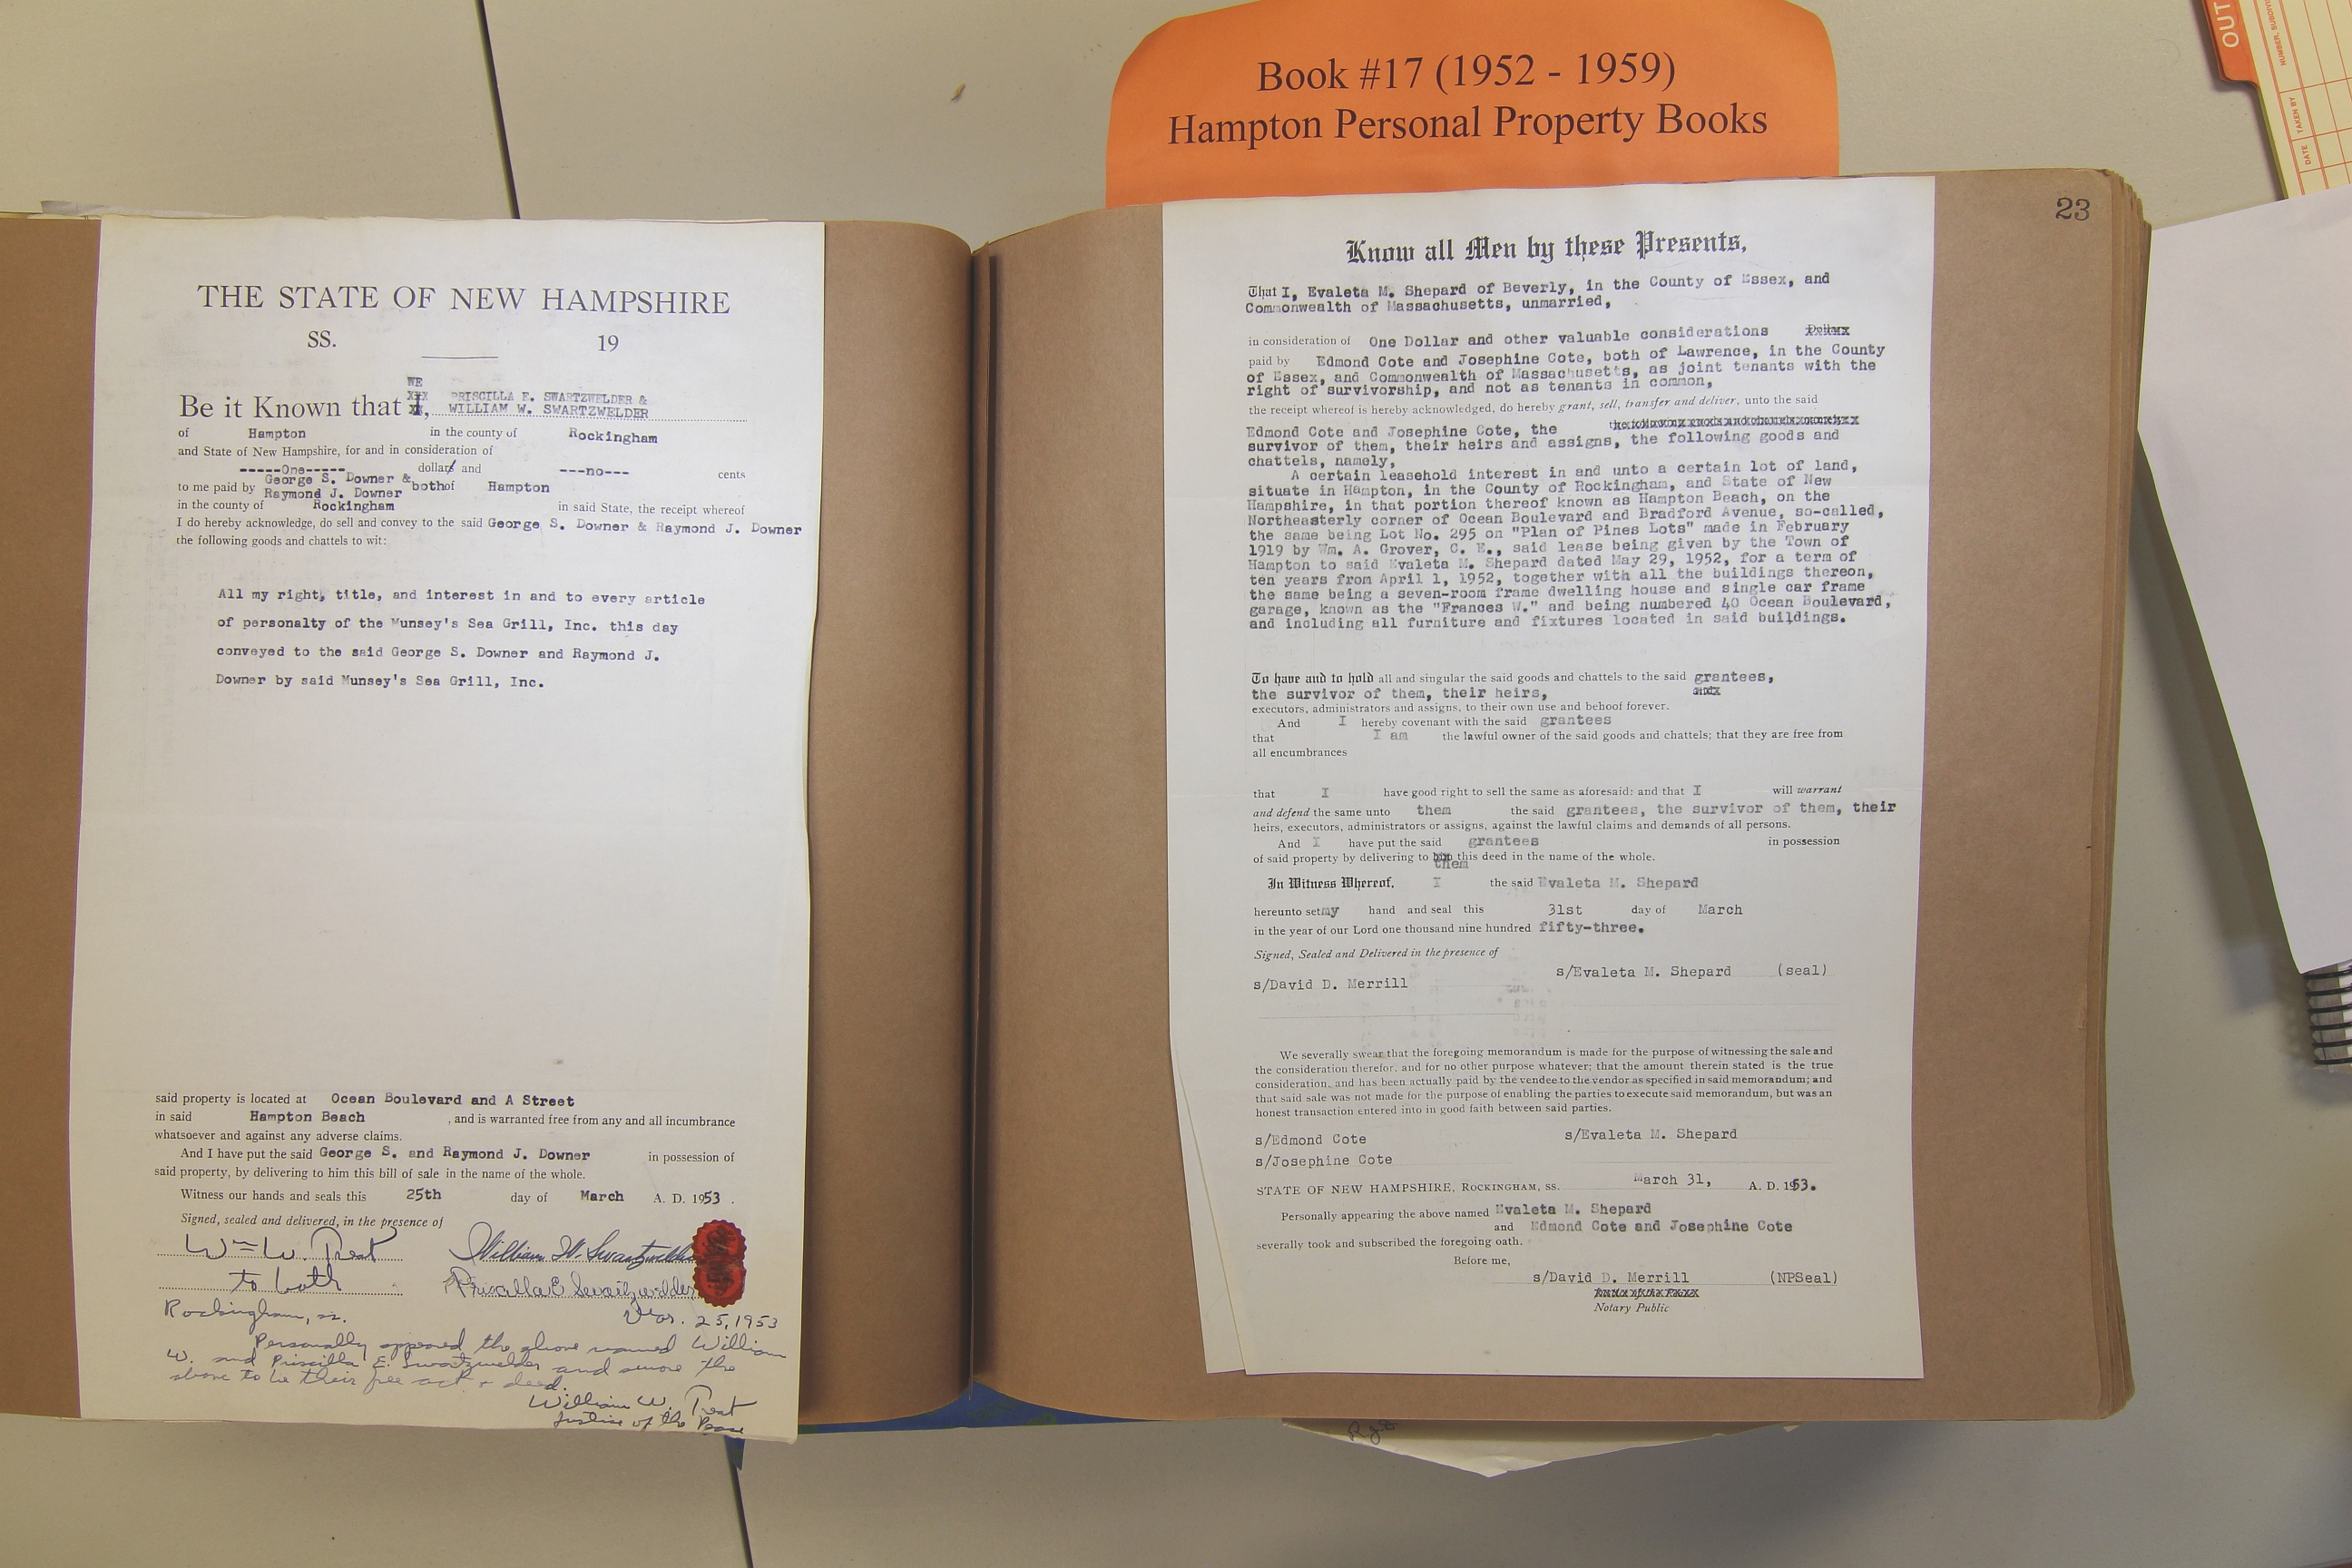 Book #17 (1952 - 1959)
Hampton Personal Property Books
OUT
NUMBER, SUBDIVI
TAKEN BY
DATE
THE STATE OF NEW HAMPSHIRE
SS. 19
WE
Be it Known that I, PRISCILLA E. SWARTZWELDER &
WILLIAM W. SWARTZWELDER
of Hampton in the county of Rockingham
and State of New Hampshire, for and in consideration of
-----One----- dollars and ---no--- cents
George S. Downer &
to me paid by Raymond J. Downer both of Hampton
in the county of Rockingham in said State, the receipt whereof
I do hereby acknowledge, do sell and convey to the said George S. Downer & Raymond J. Downer
the following goods and chattels to wit:
All my right, title, and interest in and to every article
of personalty of the Munsey's Sea Grill, Inc. this day
conveyed to the said George S. Downer and Raymond J.
Downer by said Munsey's Sea Grill, Inc.
said property is located at Ocean Boulevard and A Street
in said Hampton Beach , and is warranted free from any and all incumbrance
whatsoever and against any adverse claims.
And I have put the said George S. and Raymond J. Downer in possession of
said property, by delivering to him this bill of sale in the name of the whole.
Witness our hands and seals this 25th day of March A. D. 1953 .
Signed, sealed and delivered, in the presence of
Wm W. Treat William W. Swartzwelder
to both Priscilla E Swartzwelder
Rockingham, ss. Mar. 25, 1953
Personally appeared the above named William
W. and Priscilla E. Swartzwelder and swore the
above to be their free act + deed.
William W. Treat
Justice of the Peace
23
Know all Men by these Presents,
That I, Evaleta M. Shepard of Beverly, in the County of Essex, and
Commonwealth of Massachusetts, unmarried,
in consideration of One Dollar and other valuable considerations Dollars
paid by Edmond Cote and Josephine Cote, both of Lawrence, in the County
of Essex, and Commonwealth of Massachusetts, as joint tenants with the
right of survivorship, and not as tenants in common,
the receipt whereof is hereby acknowledged, do hereby grant, sell, transfer and deliver, unto the said
the following goods and chattels, namely
Edmond Cote and Josephine Cote, the
survivor of them, their heirs and assigns, the following goods and
chattels, namely,
A certain leasehold interest in and unto a certain lot of land,
situate in Hampton, in the County of Rockingham, and State of New
Hampshire, in that portion thereof known as Hampton Beach, on the
Northeasterly corner of Ocean Boulevard and Bradford Avenue, so-called,
the same being Lot No. 295 on "Plan of Pines Lots" made in February
1919 by Wm. A. Grover, C. E., said lease being given by the Town of
Hampton to said Evaleta M. Shepard dated May 29, 1952, for a term of
ten years from April 1, 1952, together with all the buildings thereon,
the same being a seven-room frame dwelling house and single car frame
garage, known as the "Frances W." and being numbered 40 Ocean Boulevard,
and including all furniture and fixtures located in said buildings.
To have and to hold all and singular the said goods and chattels to the said grantees,
the survivor of them, their heirs, and
executors, administrators and assigns, to their own use and behoof forever.
And I hereby covenant with the said grantees
that I am the lawful owner of the said goods and chattels; that they are free from
all encumbrances
that I have good right to sell the same as aforesaid: and that I will warrant
and defend the same unto them the said grantees, the survivor of them, their
heirs, executors, administrators or assigns, against the lawful claims and demands of all persons.
And I have put the said grantees in possession
of said property by delivering to him this deed in the name of the whole.
them
In Witness Whereof, I the said Evaleta M. Shepard
hereunto set my hand and seal this 31st day of March
in the year of our Lord one thousand nine hundred fifty-three.
Signed, Sealed and Delivered in the presence of
s/Evaleta M. Shepard (seal)
s/David D. Merrill
We severally swear that the foregoing memorandum is made for the purpose of witnessing the sale and
the consideration therefor, and for no other purpose whatever; that the amount therein stated is the true
consideration, and has been actually paid by the vendee to the vendor as specified in said memorandum; and
that said sale was not made for the purpose of enabling the parties to execute said memorandum, but was an
honest transaction entered into in good faith between said parties.
s/Edmond Cote s/Evaleta M. Shepard
s/Josephine Cote
STATE OF NEW HAMPSHIRE, ROCKINGHAM, SS. March 31, A. D. 1953.
Personally appearing the above named Evaleta M. Shepard
and Edmond Cote and Josephine Cote
severally took and subscribed the foregoing oath.
Before me,
s/David D. Merrill (NPSeal)
Notary Public